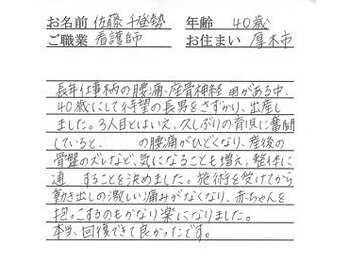 お名前 佐藤千登勢 年齢 40歳
ご職業 看護師 お住まい 厚木市
長年仕事柄の腰痛、座骨神経 用がある中、
40歳にして待望の長男をさずかり、出産し
ました。3人目とはいえ、久しぶりの育児に奮闘
していると、 の腰痛がひどくなり、産後の
骨盤のズレなど、気になることも増え、整体に
通 することを決めました。施術を受けてから
動き出しの激しい痛みがなくなり、赤ちゃんを
抱っこするのもかなり楽になりました。
本当、回復できて良かったです。